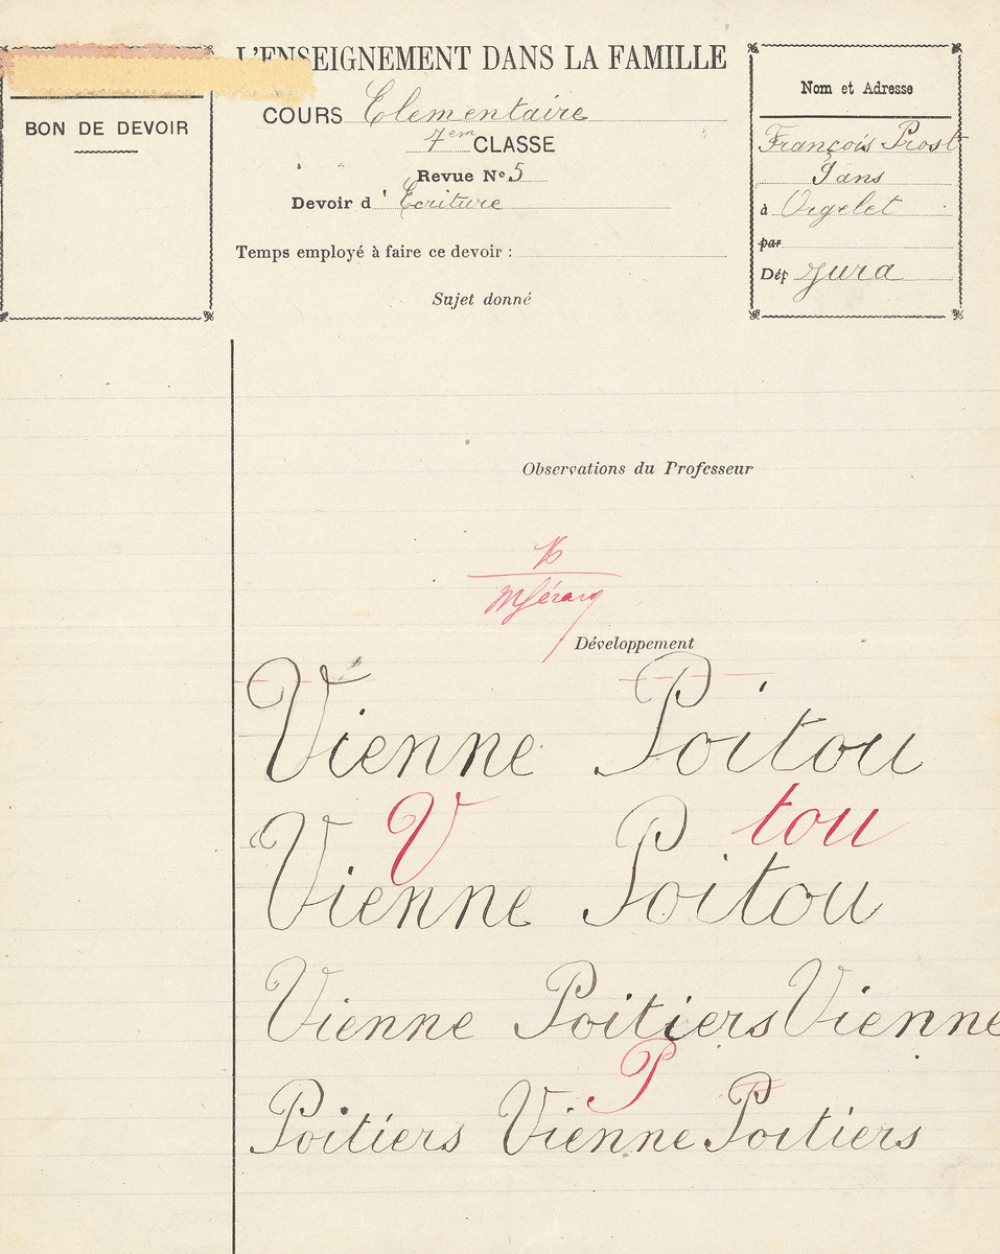 L'ENSEIGNEMENT DANS LA FAMILLE
BON DE DEVOIR
COURS Elementaire
4em CLASSE
Revue No 5
Devoir d'Ecriture
Temps employé à faire ce devoir :
Sujet donné
Nom et Adresse
François Prost
à Orgelet
par
Dép Jura
Observations du Professeur
Développement
Vienne Poitou
V tou
Vienne Poitou
Vienne Poitiers Vienne
P
Poitiers Vienne Poitiers